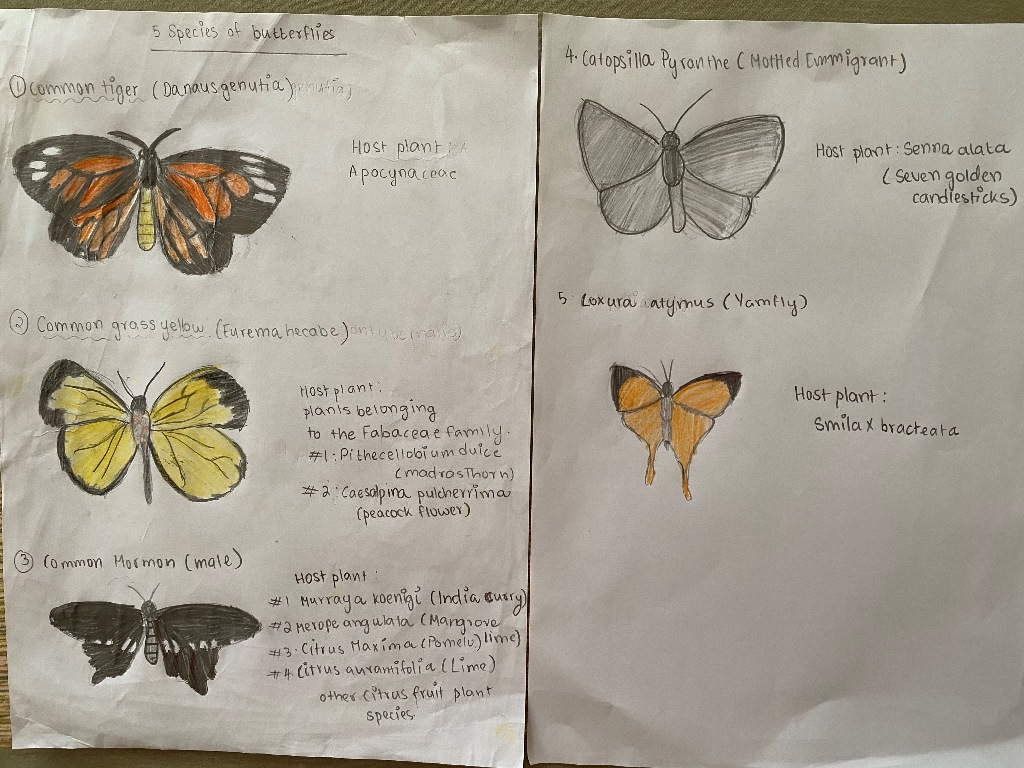 5 Species of butterflies
① Common tiger (Danaus genutia) genutia)
Host plant:
Apocynaceae
② Common grass yellow (Eurema hecabe)
Host plant:
plants belonging
to the Fabaceae family.
#1: Pithecellobium dulce
(madras Thorn)
#2: Caesalpina pulcherrima
(peacock flower)
③ Common Mormon (male)
Host plant:
#1 Murraya koenigi (India curry)
#2 Merope angulata (Mangrove
lime)
#3. Citrus Maxima (Pomelo)
#4. Citrus auramifolia (Lime)
other citrus fruit plant
species.
4. Catopsilla Pyranthe (Mottled Emmigrant)
Host plant: Senna alata
(Seven golden
candlesticks)
5. Loxura atymus (Yamfly)
Host plant:
Smilax bracteata